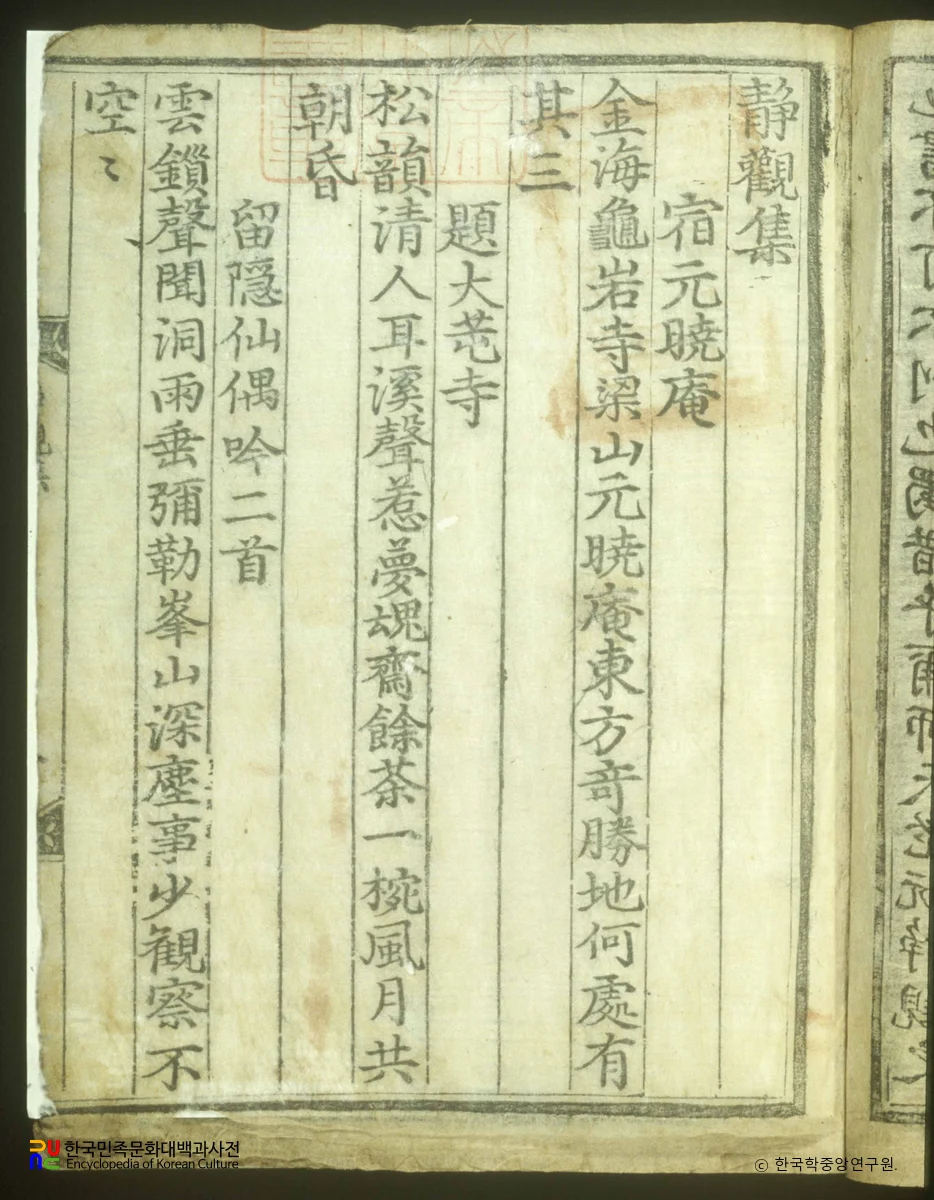 静觀集
宿元曉庵
金海龜岩寺梁山元曉庵東方竒勝地何處有
其三
題大芚寺
松韻清人耳溪聲惹夢魂齋餘茶一椀風月共
朝昏
留隠仙偶吟二首
雲鎖聲聞洞雨垂彌勒峯山深塵事少観察不
空〻
한국민족문화대백과사전
Encyclopedia of Korean Culture
© 한국학중앙연구원.